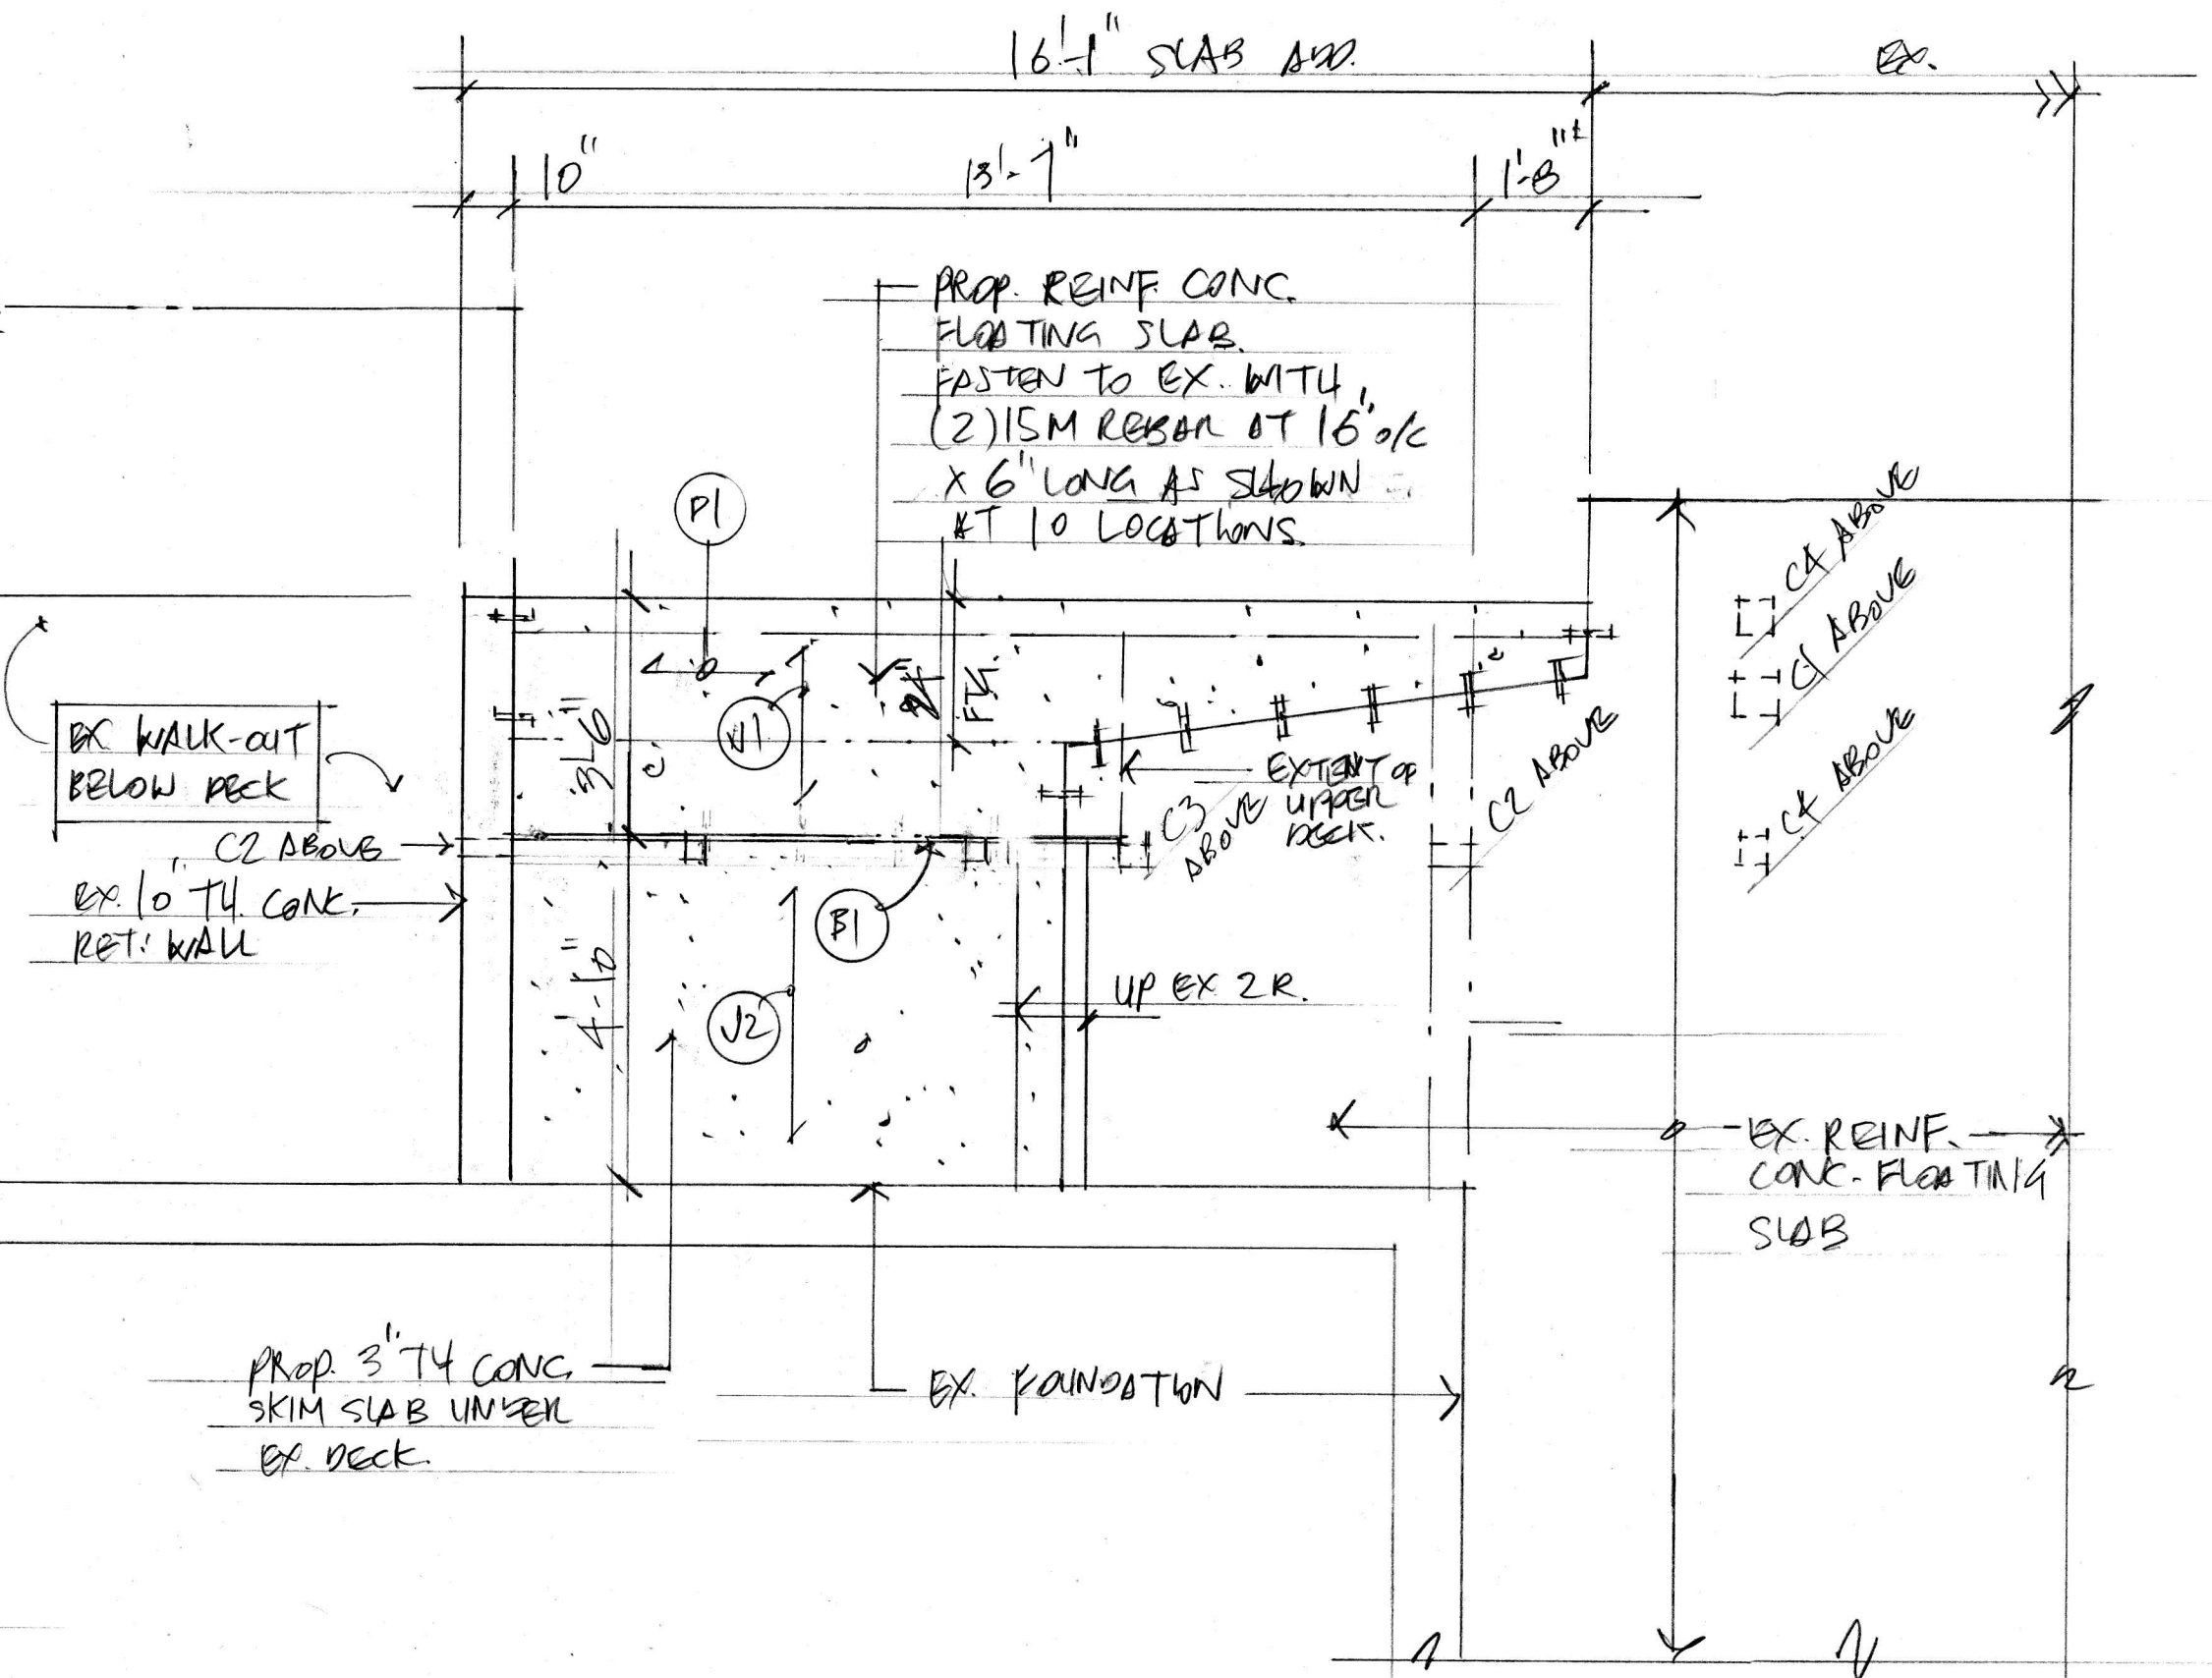 16'-1" SLAB ADD.
EX.
10"
13'-7"
1'-8"±
PROP. REINF. CONC.
FLOATING SLAB.
FASTEN TO EX. WITH
(2) 15M REBAR AT 16" o/c
X 6" LONG AS SHOWN
AT 10 LOCATIONS.
P1
C4 ABOVE
C1 ABOVE
C4 ABOVE
EX WALK-OUT
BELOW DECK
3'-6"
FTG.
EXTENT OF
UPPER
DECK.
C3
ABOVE
C2 ABOVE
C2 ABOVE
EX. 10" TH. CONC.
RET. WALL
B1
4'-10"
J2
UP EX 2 R.
EX. REINF.
CONC. FLOATING
SLAB
PROP. 3" TH CONC.
SKIM SLAB UNDER
EX. DECK.
EX. FOUNDATION